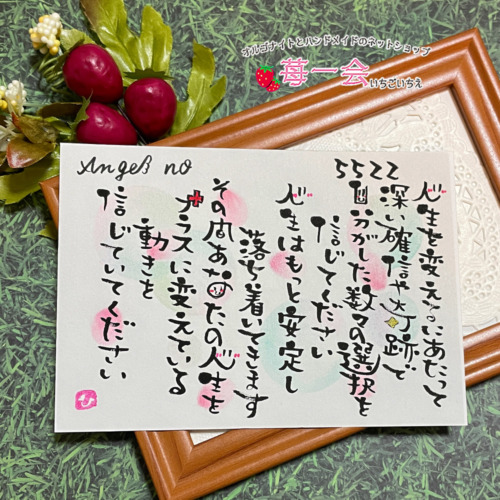 オルゴナイトとハンドメイドのネットショップ
苺一会
いちごいちえ
Angel no
5522
人生を変えるにあたって
深い確信や奇跡で
自分がした数々の選択を
信じてください
人生はもっと安定し
落ち着いてきます
その間あなたの人生を
プラスに変えている
動きを
信じていてください